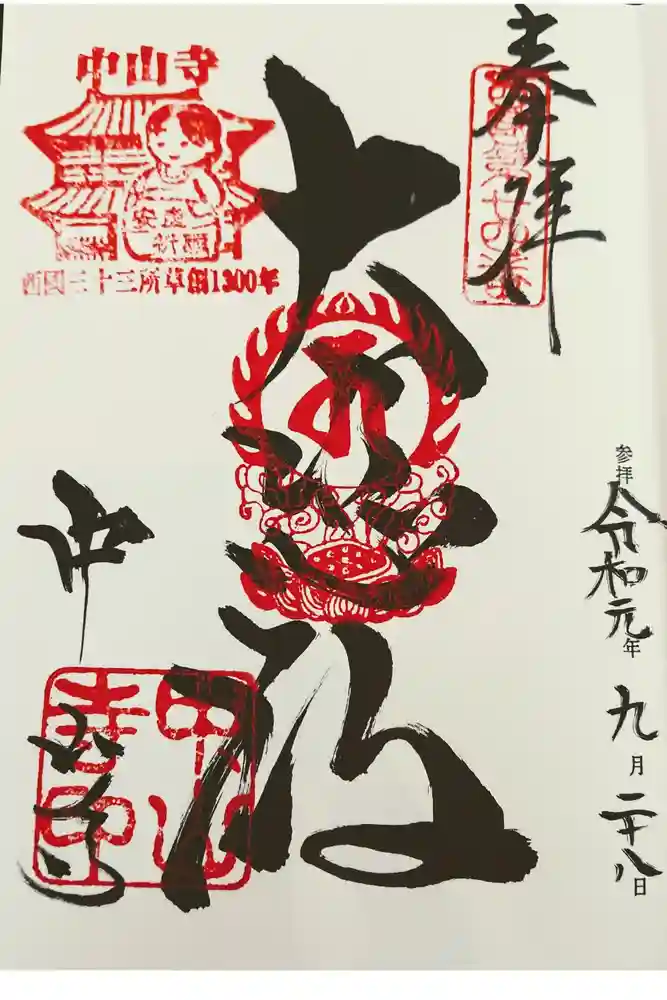 奉拝
参拝 令和元年 九月二十八日
大悲殿
中山寺
安産
祈願
西國三十三所草創1300年
中山寺
中山寺印